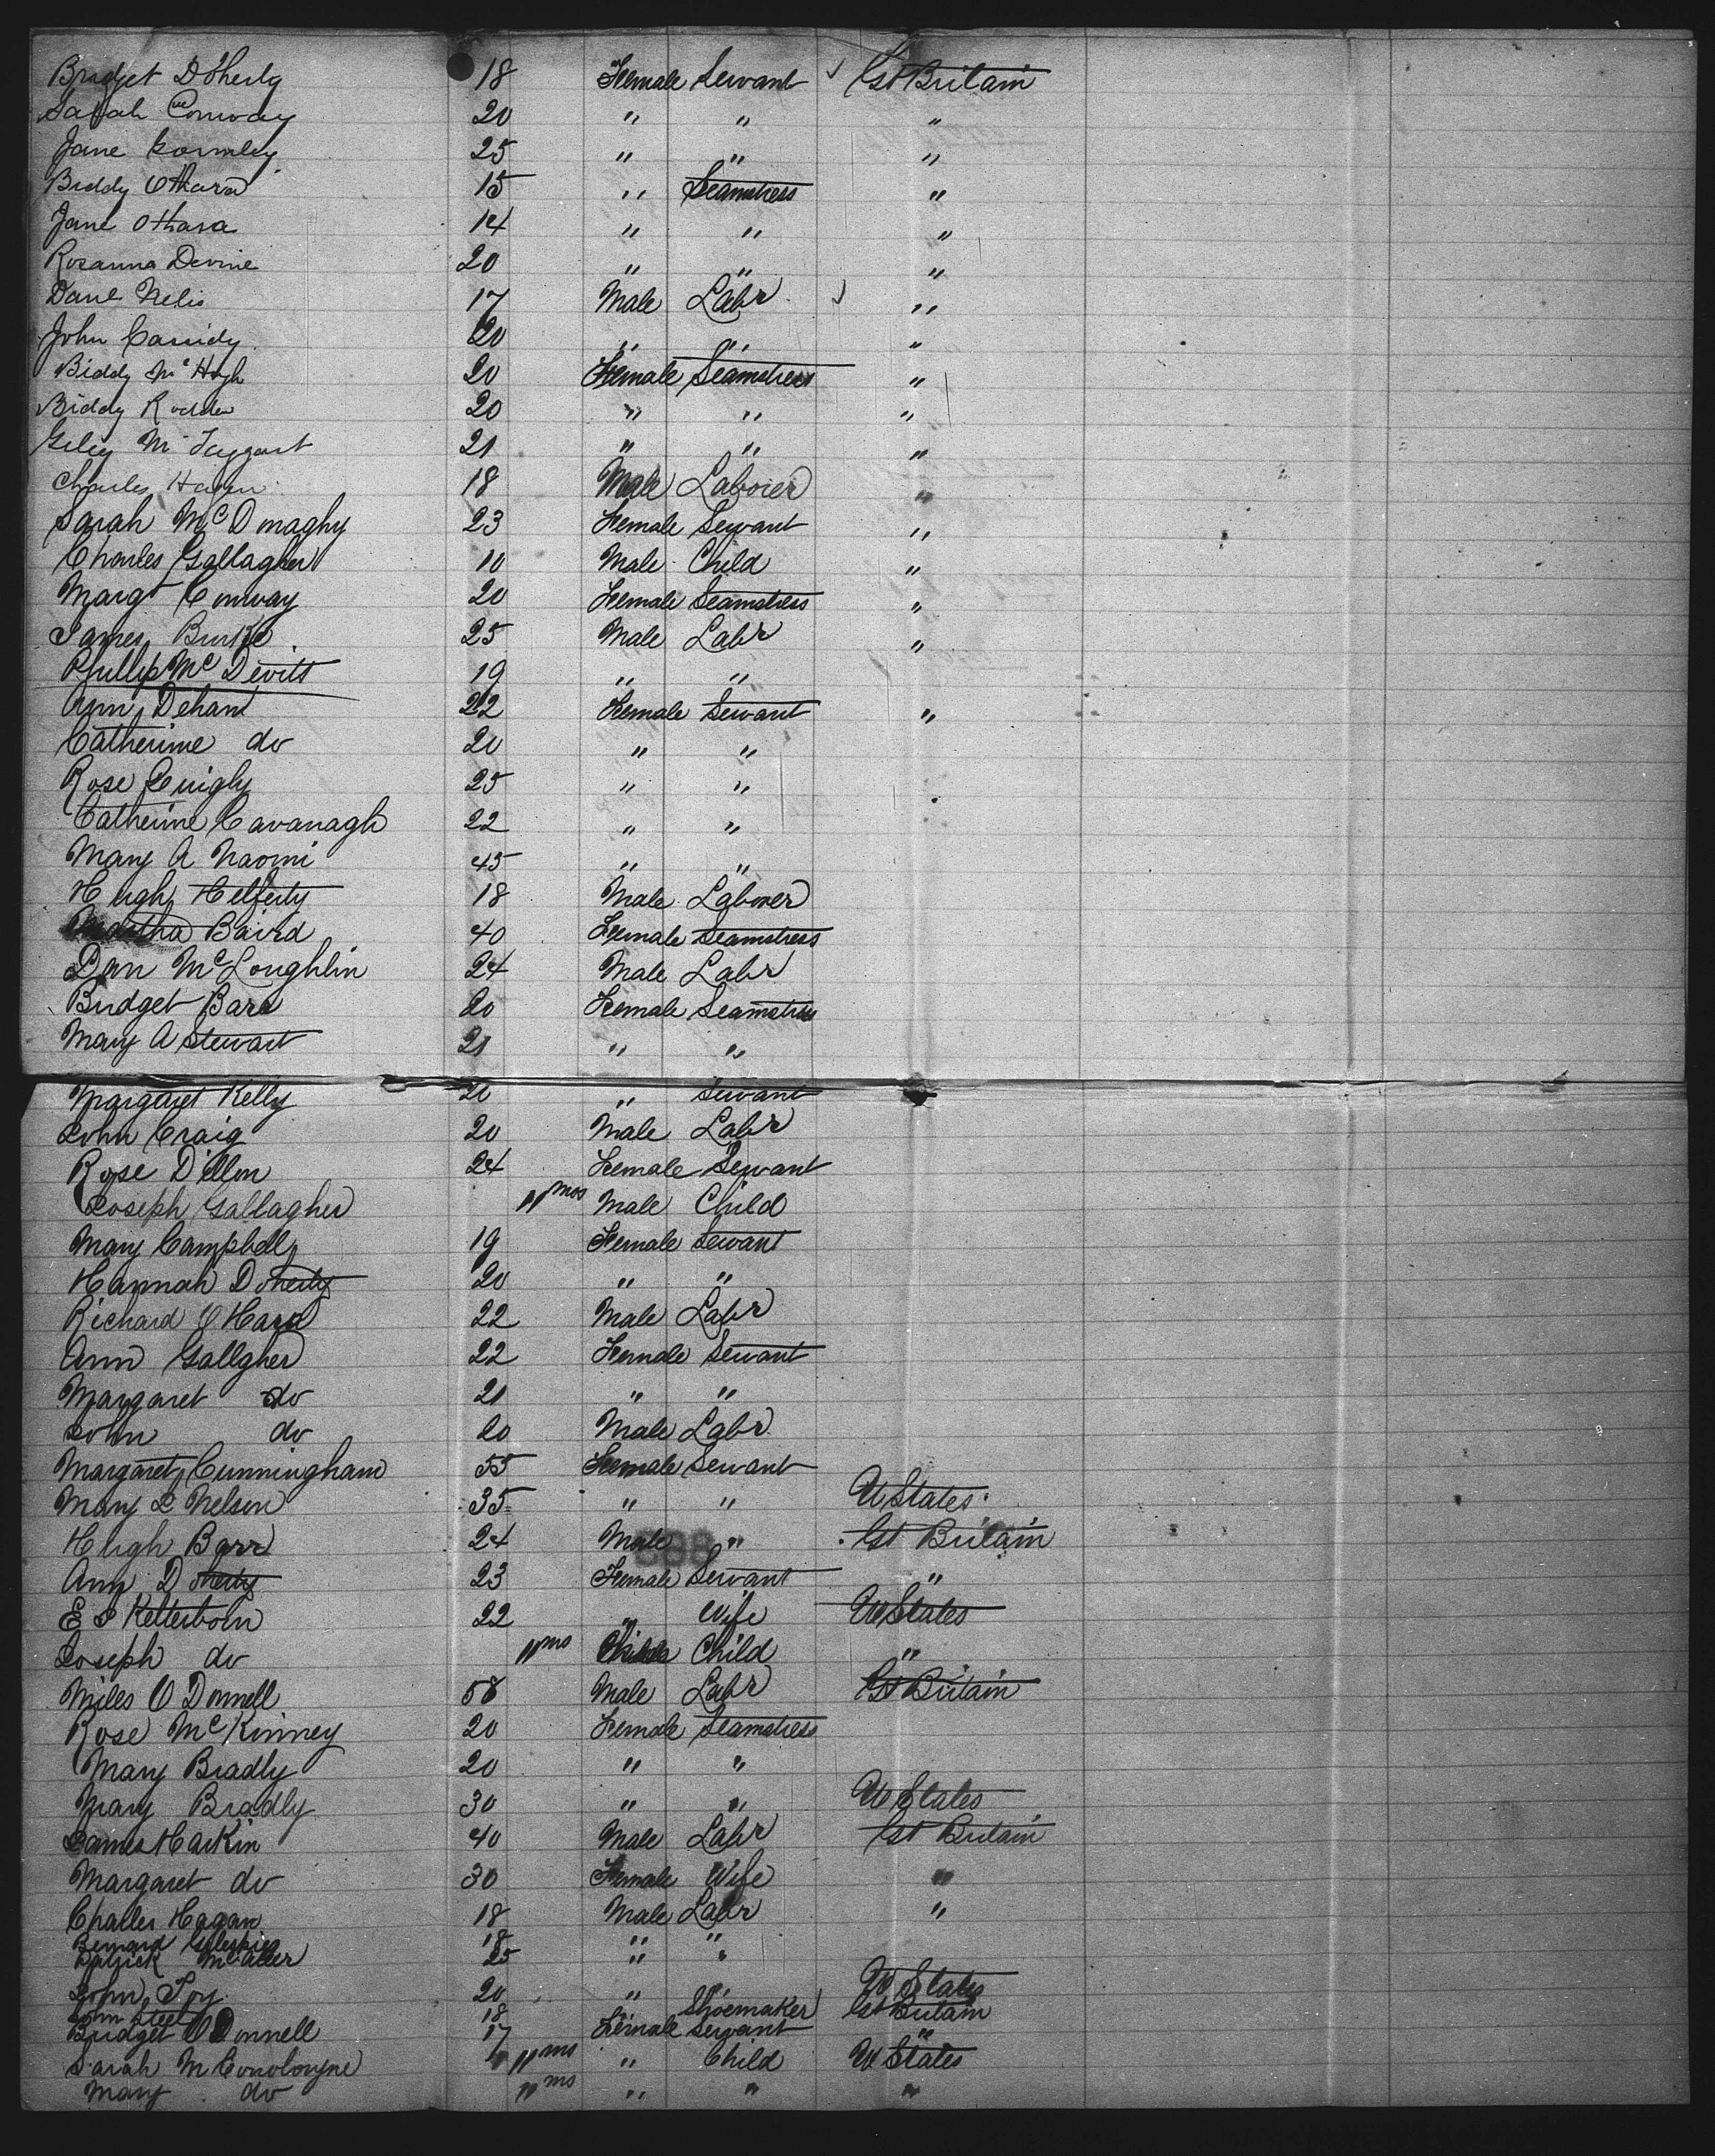 Bridget Doherty 18 Female Servant ✓ Gt Britain
Sarah Conway 20 " " "
Jane Gormley 25 " " "
Biddy O'Hara 15 " Seamstress "
Jane O'Hara 14 " " "
Rosanna Devine 20 " " "
Danl Nelis 17 Male Labr ✓ "
John Cassidy 20 " " "
Biddy McHugh 20 Female Seamstress "
Biddy Rodden 20 " " "
McTaggart 21 " " "
Charles Hagan 18 Male Laborer "
Sarah McDonaghy 23 Female Servant "
Charles Gallagher 10 Male Child "
Margt Conway 20 Female Seamstress "
James Burke 25 Male Labr "
Phillip McDevitt 19 " "
Ann Dehant 22 Female Servant "
Catherine do 20 " "
Rose Quigly 25 " "
Catherine Cavanagh 22 " "
Mary A Naomi 45 " "
Hugh Helferty 18 Male Laborer
Baird 40 Female Seamstress
Dan McLoughlin 24 Male Labr
Bridget Barr 20 Female Seamstress
Mary A Stewart 21 " "
Margaret Kelly 20 " Servant
John Craig 20 Male Labr
Rose Dillon 24 Female Servant
Joseph Gallagher 11 mos Male Child
Mary Campbell 19 Female Servant
Hannah Doherty 20 " "
Richard O'Hara 22 Male Labr
Ann Gallgher 22 Female Servant
Margaret do 21 " "
John do 20 Male Labr
Margaret Cunningham 55 Female Servant
Mary L Nelson 35 " " U States
Hugh Barr 24 Male " Gt Britain
Ann Doherty 23 Female Servant "
E S Ketterborn 22 " Wife U States
Joseph do 11 ms Child "
Miles O Donnell 58 Male Labr Gt Britain
Rose McKinney 20 Female Seamstress
Mary Bradly 20 " "
Mary Bradly 30 " " U States
James Harkin 40 Male Labr Gt Britain
Margaret do 30 Female Wife "
Charles Hagan 18 Male Labr "
Bernard Gillespie 18 " "
Patrick McAleer 25 " "
John Toy 20 " U States
John Steel 18 Shoemaker Gt Britain
Bridget O Donnell 17 Female Servant "
Sarah McConologyne 11 ms " Child U States
Mary do 11 ms " " "